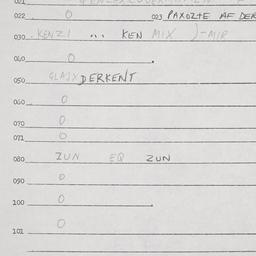 021
022 0 023 PAXOZTE AF DER
030 KENZI " . KEN MIX )-MIP
040 0
050 GLASX DERKENT
060 0
070 0
071 0
080 ZUN EQ ZUN
090 0
100 0
101 0